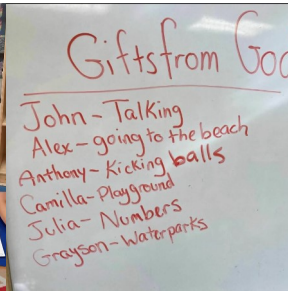 Gifts from God
John - Talking
Alex - going to the beach
Anthony - Kicking balls
Camilla - Playground
Julia - Numbers
Grayson - Waterparks